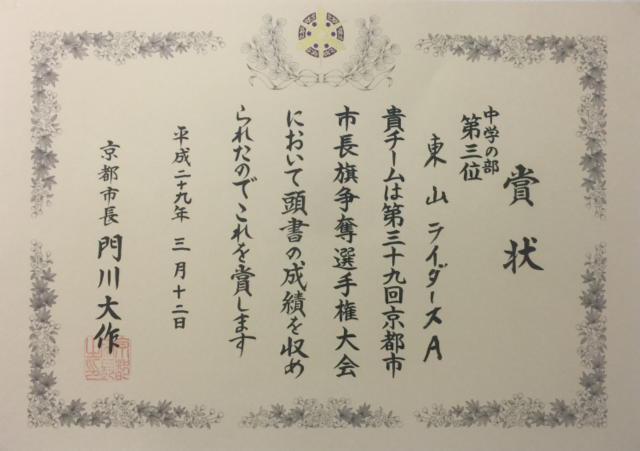 賞状
中学の部
第三位
東山ライダースA
貴チームは第三十九回京都市
市長旗争奪選手権大会
において頭書の成績を収め
られたのでこれを賞します
平成二十九年三月十二日
京都市長 門川大作